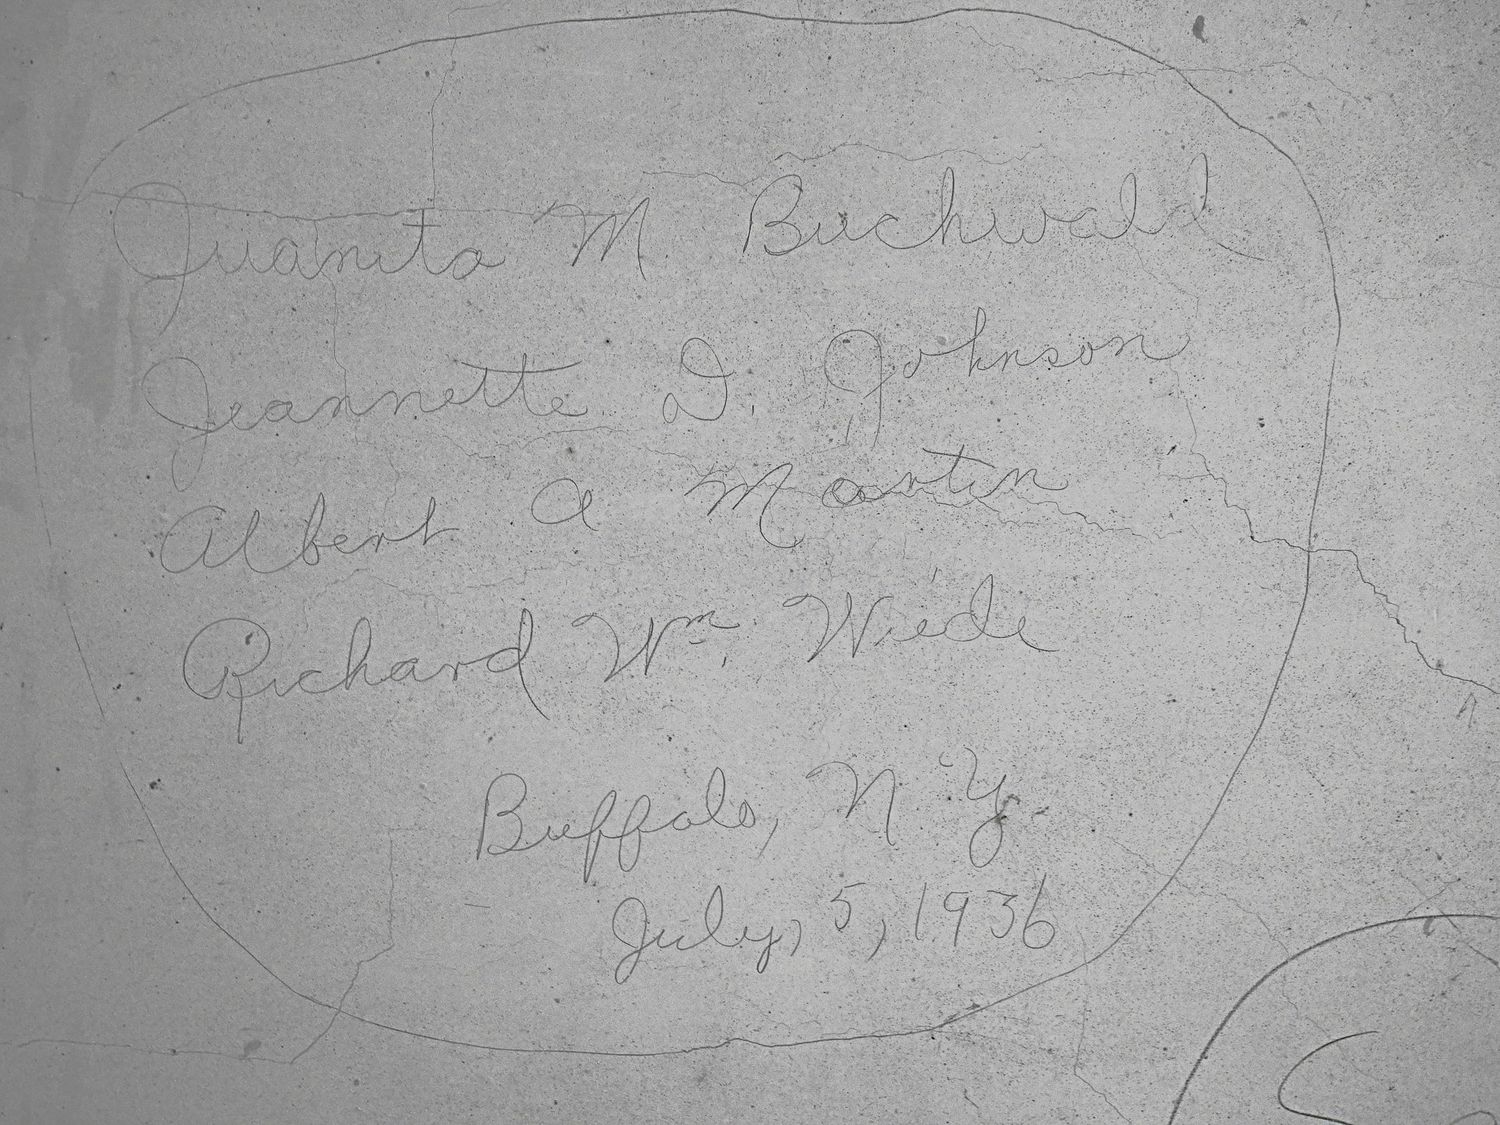 Juanita M Buchwald
Jeannette D. Johnson
Albert A Martin
Richard Wm. Wiede
Buffalo, N Y.
July, 5, 1936